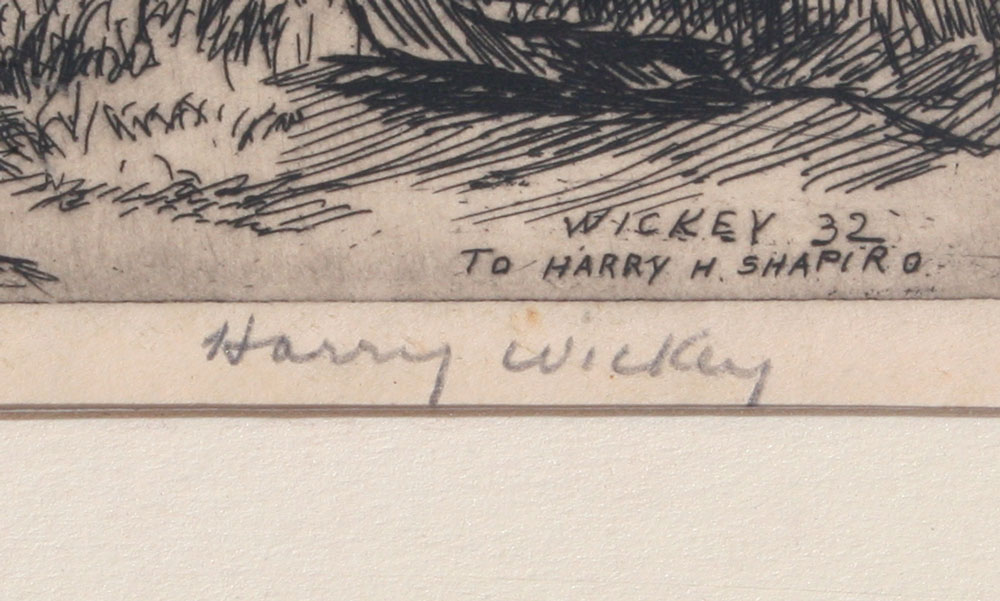 WICKEY 32
TO HARRY H. SHAPIRO
Harry Wickey